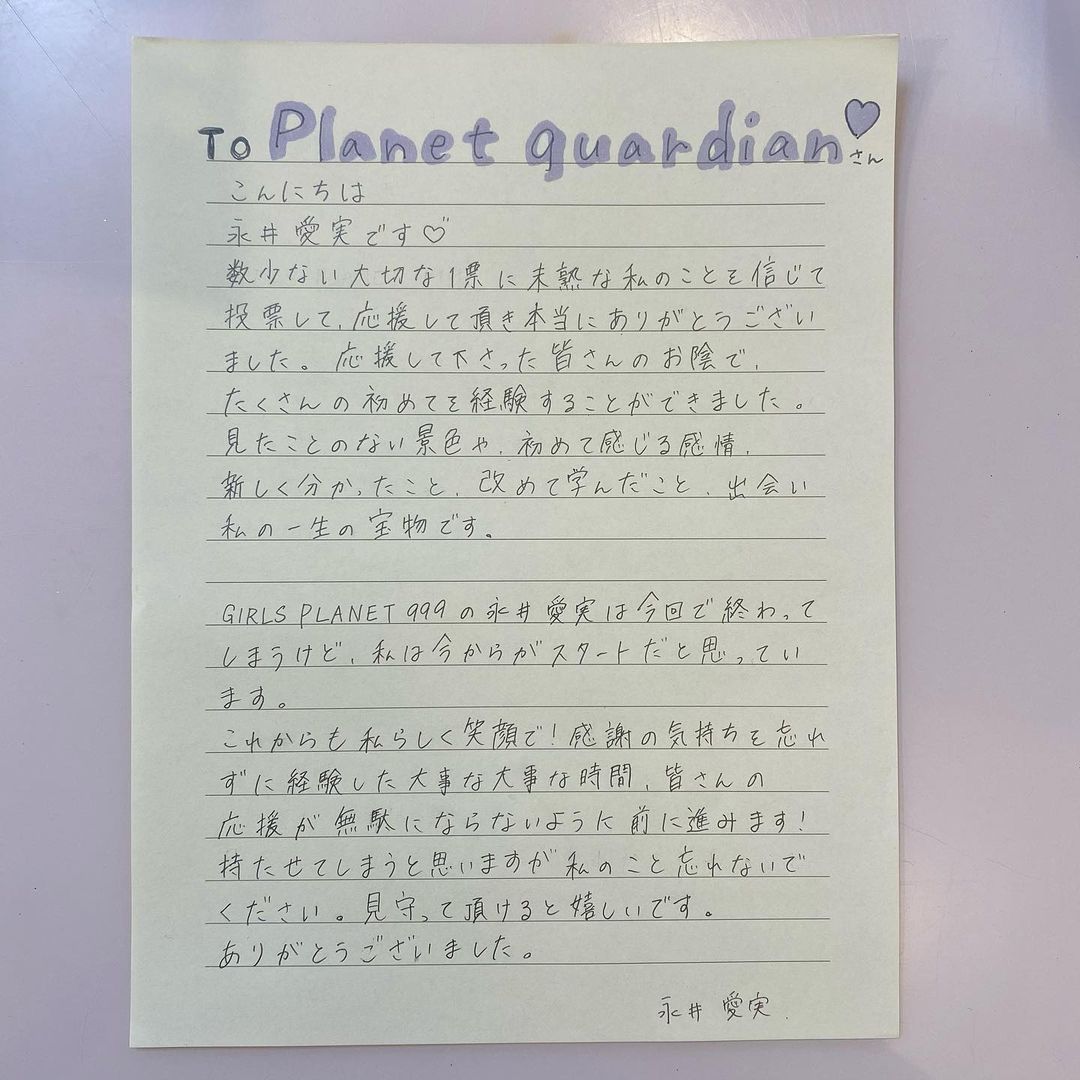 To Planet guardian♡さん
こんにちは
永井愛実です♡
数少ない大切な1票に未熟な私のことを信じて
投票して、応援して頂き本当にありがとうござい
ました。応援して下さった皆さんのお陰で、
たくさんの初めてを経験することができました。
見たことのない景色や、初めて感じる感情、
新しく分かったこと、改めて学んだこと、出会い
私の一生の宝物です。
GIRLS PLANET 999の永井愛実は今回で終わって
しまうけど、私は今からがスタートだと思ってい
ます。
これからも私らしく笑顔で!感謝の気持ちを忘れ
ずに経験した大事な大事な時間、皆さんの
応援が無駄にならないように前に進みます!
持たせてしまうと思いますが私のこと忘れないで
ください。見守って頂けると嬉しいです。
ありがとうございました。
永井愛実.